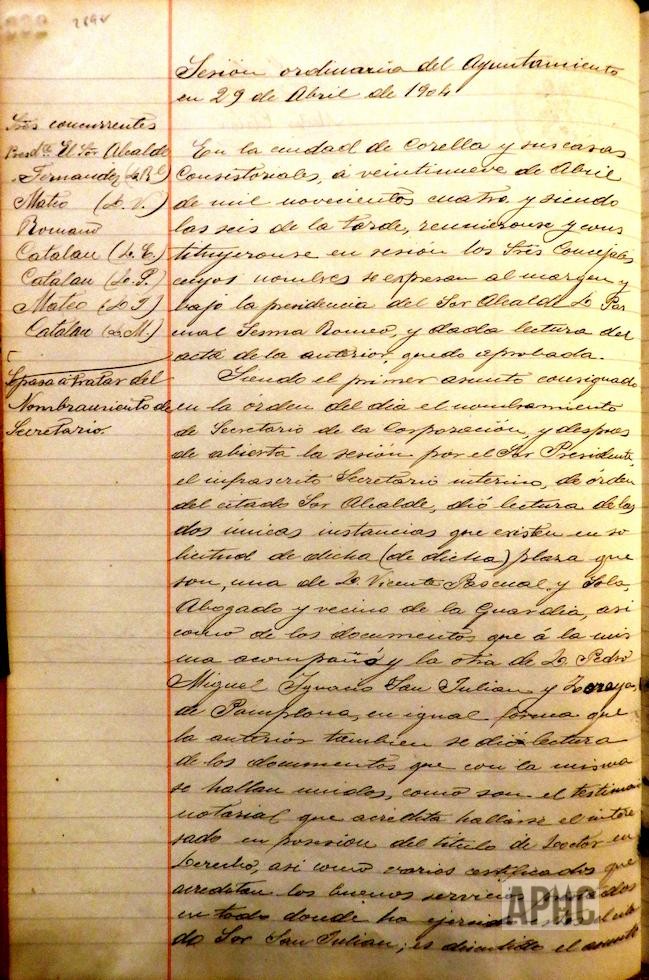 289v
Sesión ordinaria del Ayuntamiento
en 29 de Abril de 1904
Sres concurrentes
Presdte El Sor Alcalde
Fernandez (D. Bl)
Mateo (D. V.)
Romano
Catalan (D. C)
Catalan (D. P.)
Mateo (D. J)
Catalan (D. M.)
Se pasa á tratar del
Nombramiento de
Secretario.
En la ciudad de Corella y sus casas
Consistoriales, a veintinueve de Abril
de mil novecientos cuatro y siendo
las seis de la tarde, reunieronse y cons
tituyeronse en sesión los Sres Concejales
cuyos nombres se expresan al margen y
bajo la presidencia del Sor Alcalde D. Pas
cual Sesma Romeo, y dada lectura del
acta de la anterior quedo aprobada.
Siendo el primer asunto consignado
en la órden del dia el nombramiento
de Secretario de la Corporación, y despues
de abierta la sesión por el Sor Presidente,
el infrascrito Secretario interino, de órden
del citado Sor Alcalde, dió lectura de las
dos únicas instancias que existen en so
licitud de dicha (de dicha) plaza que
son, una de D. Vicente Pascual y Sola,
Abogado y vecino de la Guardia, asi
como de los documentos que á la mis
ma acompaña y la otra de D. Pedro
Miguel Ignacio San Julian y
de Pamplona, en igual forma que
la anterior tambien se dió lectura
de los documentos que con la misma
se hallan unidos, como son el testimonio
notarial que acredita hallarse el intere
sado en posesión del titulo de Doctor en
Derecho, asi como varios certificados que
acreditan los buenos servicios prestados
en todo donde ha ejercido el cita
do Sor San Julian; es discutido el asunto
APHC